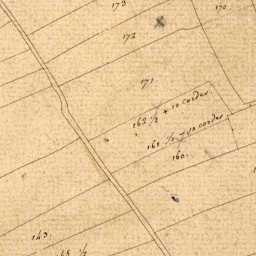 173
170
172
171
162 1/2 + 10 cordes
161 1/2 + 10 cordes
160.
143.